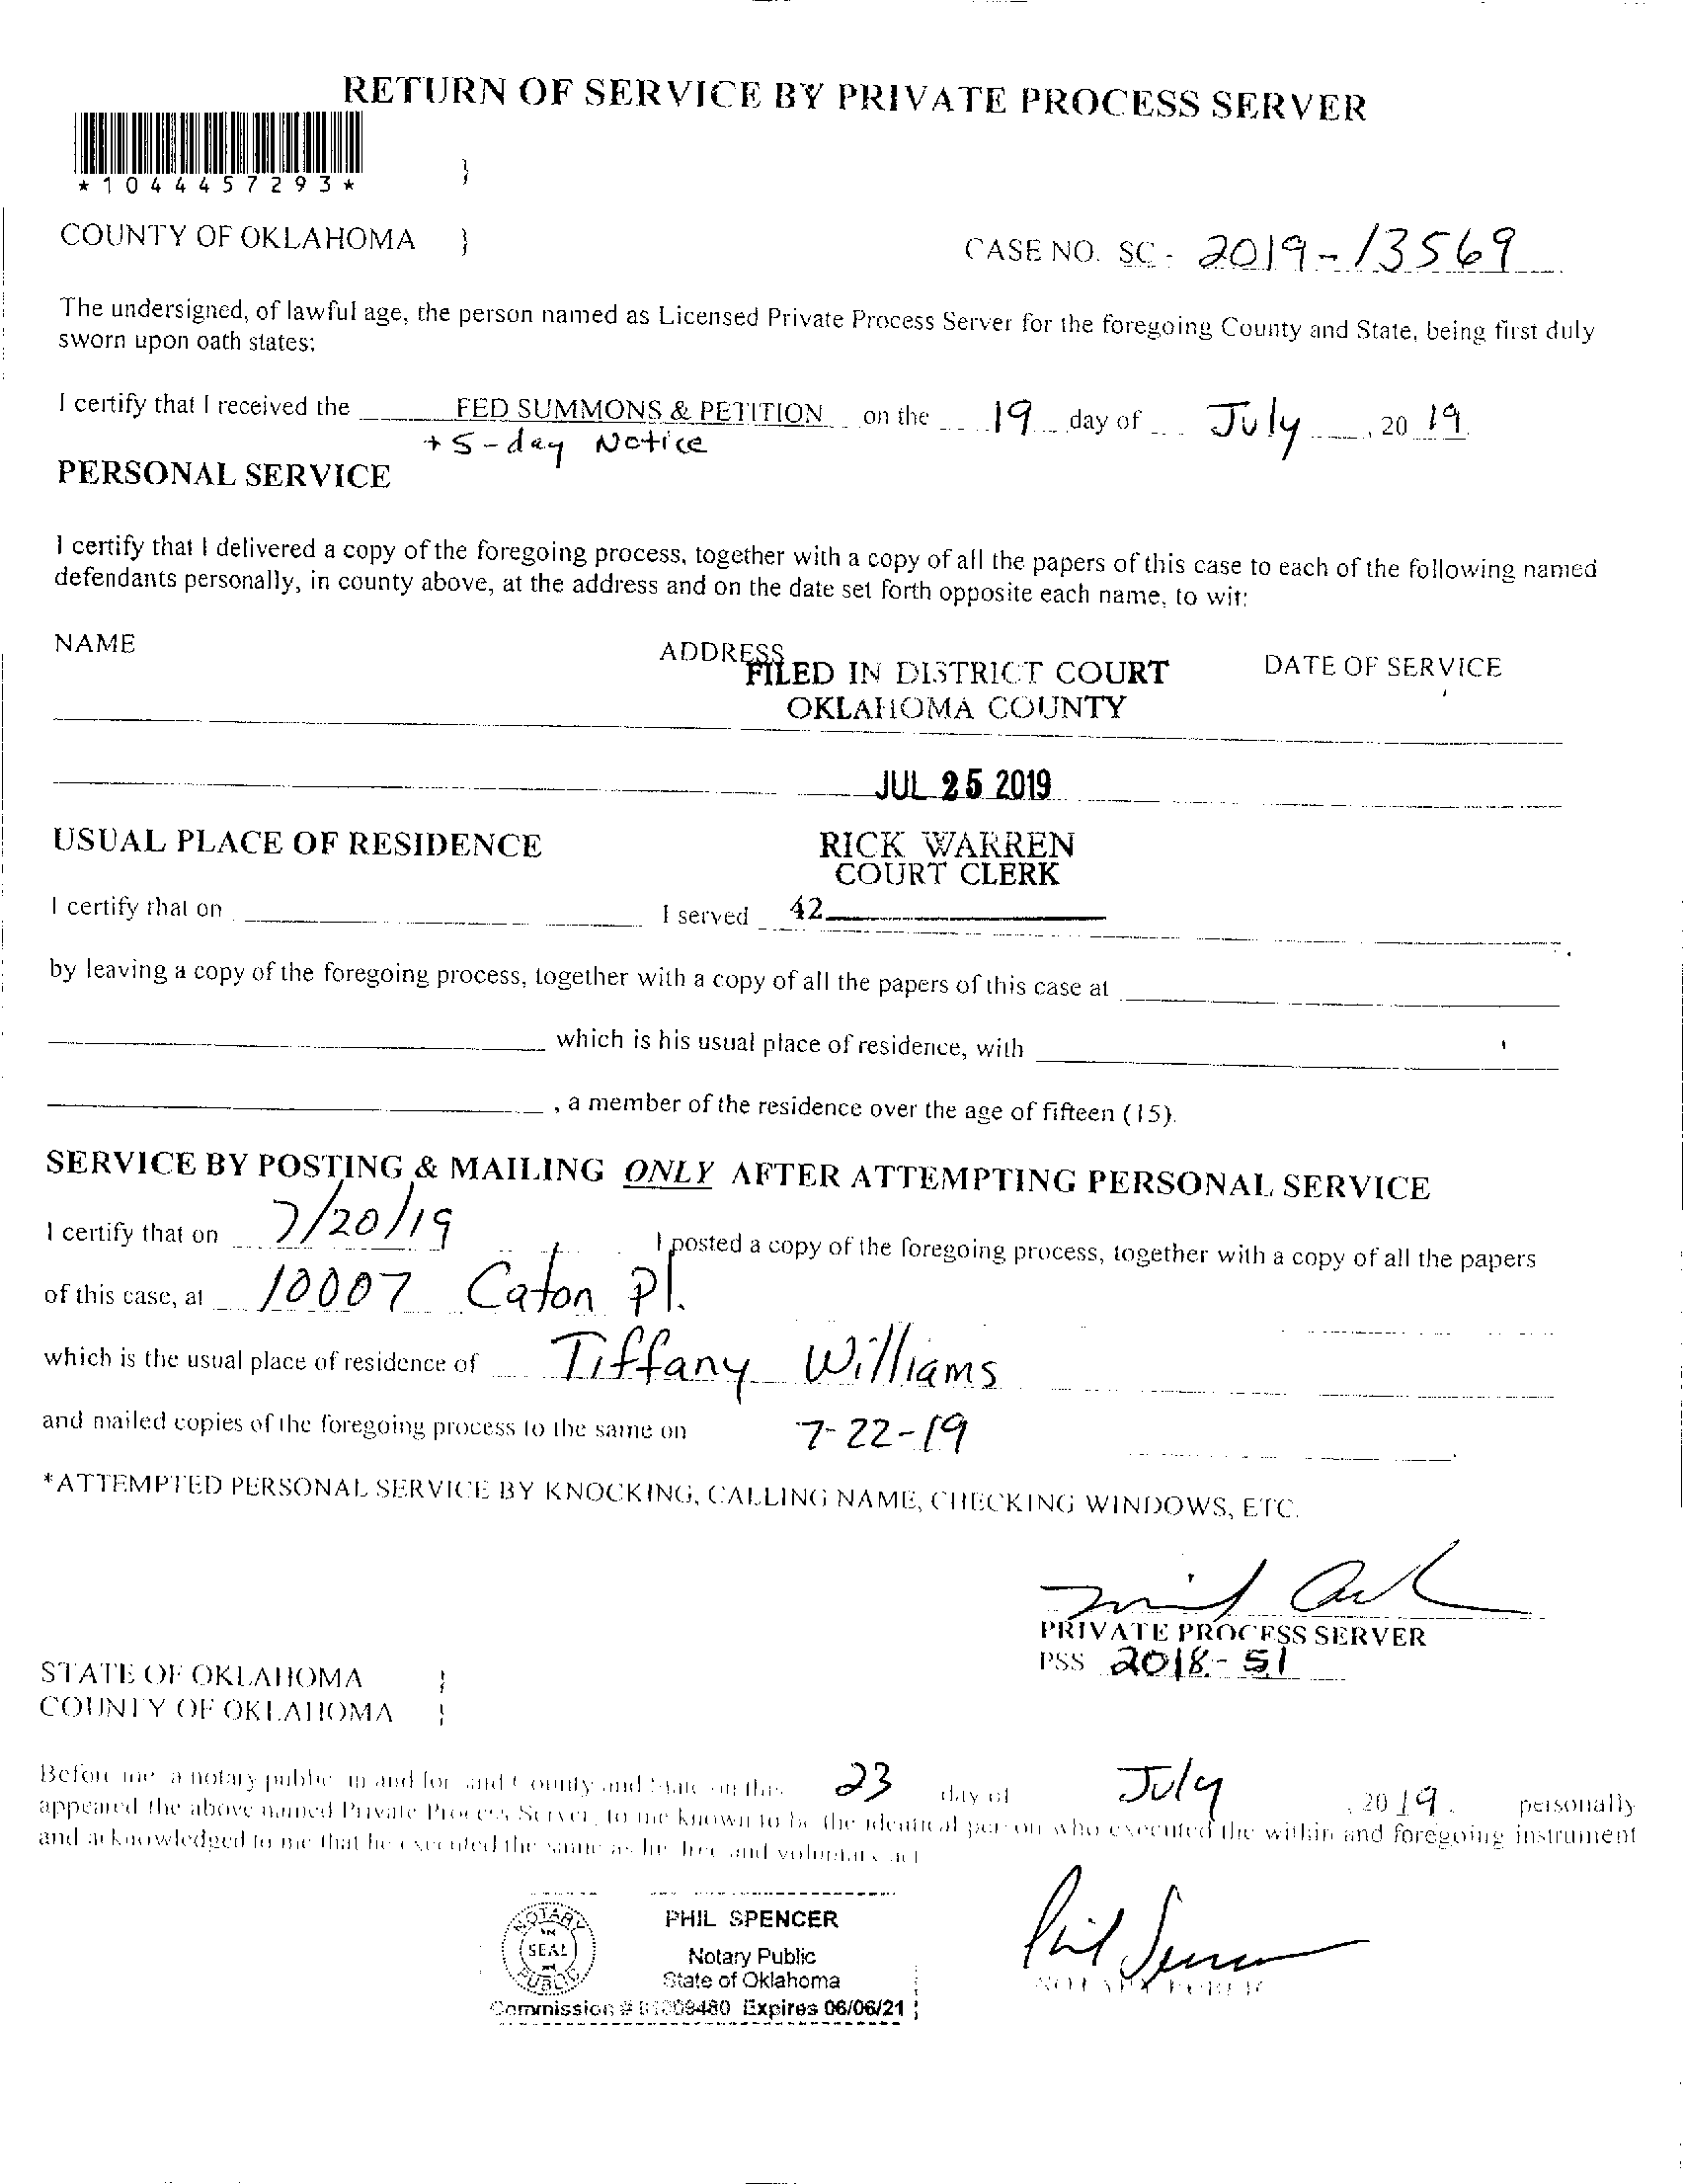 RETURN OF SERVICE BY PRIVATE PROCESS SERVER
*1044457293* }
COUNTY OF OKLAHOMA } CASE NO. SC - 2019-13569
The undersigned, of lawful age, the person named as Licensed Private Process Server for the foregoing County and State, being first duly
sworn upon oath states:
I certify that I received the FED SUMMONS & PETITION on the 19 day of July, 20 19.
+ 5-day Notice
PERSONAL SERVICE
I certify that I delivered a copy of the foregoing process, together with a copy of all the papers of this case to each of the following named
defendants personally, in county above, at the address and on the date set forth opposite each name, to wit:
NAME ADDRESS DATE OF SERVICE
FILED IN DISTRICT COURT
OKLAHOMA COUNTY
JUL 25 2019
USUAL PLACE OF RESIDENCE RICK WARREN
COURT CLERK
I certify that on I served 42
by leaving a copy of the foregoing process, together with a copy of all the papers of this case at
which is his usual place of residence, with
, a member of the residence over the age of fifteen (15).
SERVICE BY POSTING & MAILING ONLY AFTER ATTEMPTING PERSONAL SERVICE
I certify that on 7/20/19 I posted a copy of the foregoing process, together with a copy of all the papers
of this case, at 10007 Caton Pl.
which is the usual place of residence of Tiffany Williams
and mailed copies of the foregoing process to the same on 7-22-19
*ATTEMPTED PERSONAL SERVICE BY KNOCKING, CALLING NAME, CHECKING WINDOWS, ETC.
PRIVATE PROCESS SERVER
PSS 2018-51
STATE OF OKLAHOMA }
COUNTY OF OKLAHOMA }
Before me a notary public in and for said County and State on this 23 day of July, 2019. personally
appeared the above named Private Process Server, to me known to be the identical person who executed the within and foregoing instrument
and acknowledged to me that he executed the same as his free and voluntary act
NOTARY PUBLIC
SEAL
PHIL SPENCER
Notary Public
State of Oklahoma
Commission # Expires 06/06/21
Phil Spencer
NOTARY PUBLIC